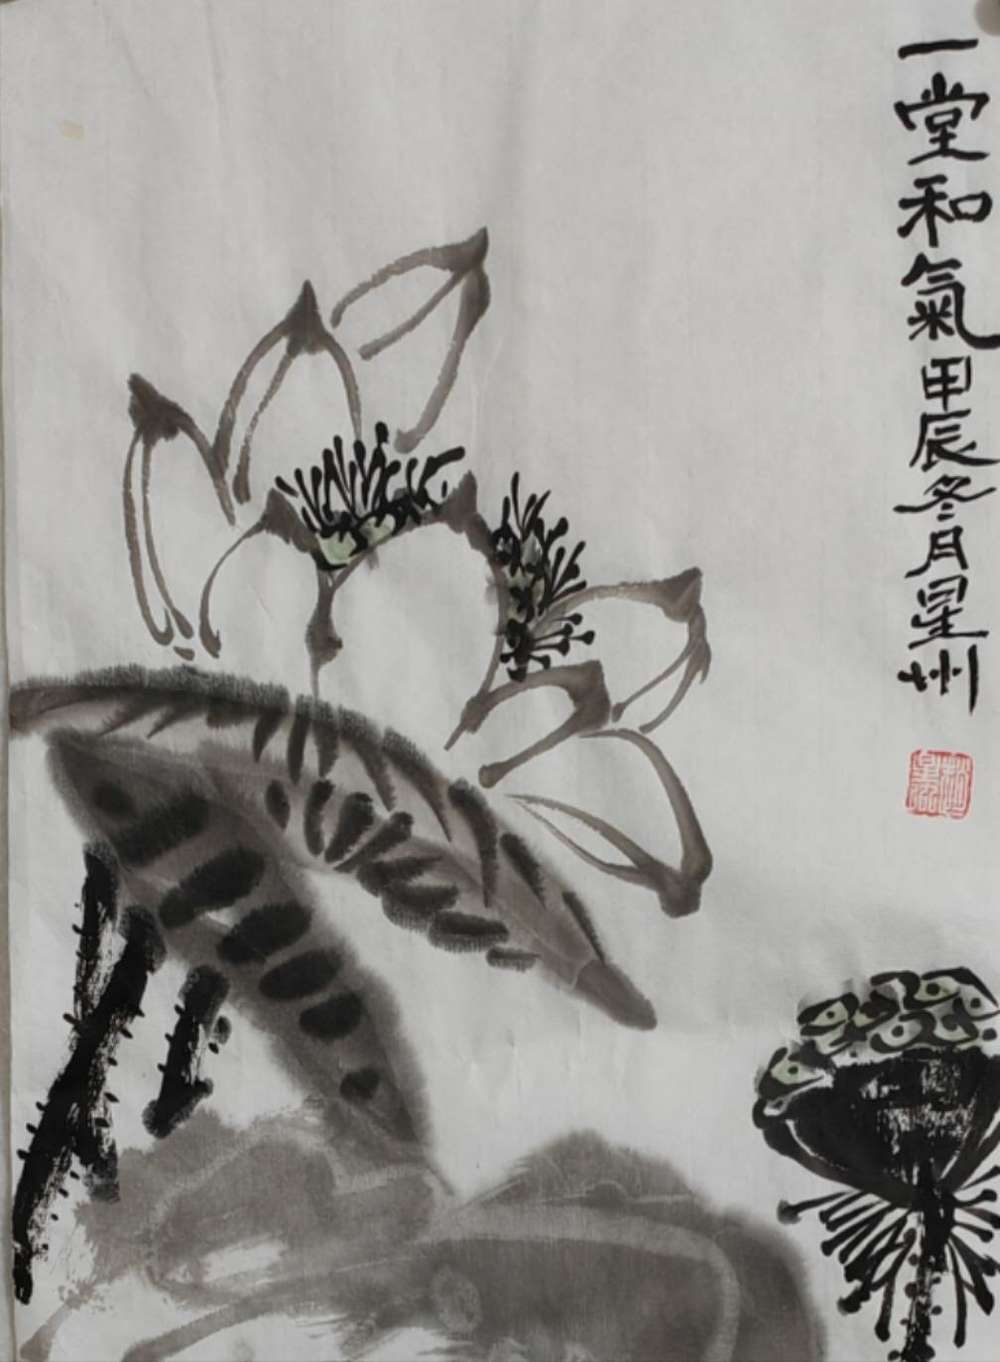 一堂和氣甲辰冬月星州